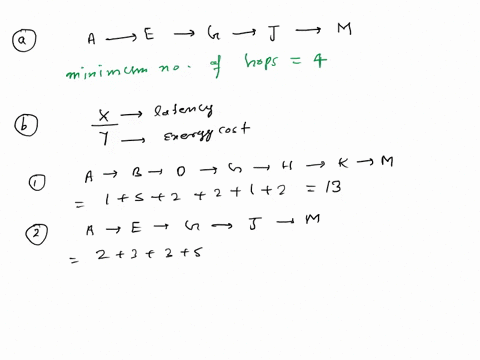 a A → E → G → J → M
minimum no. of hops = 4
b X → latency
Y → exergy cost
1 A → B → D → G → H → K → M
= 1 + 5 + 2 + 2 + 1 + 2 = 13
2 A → E → G → J → M
= 2 + 3 + 3 + 5